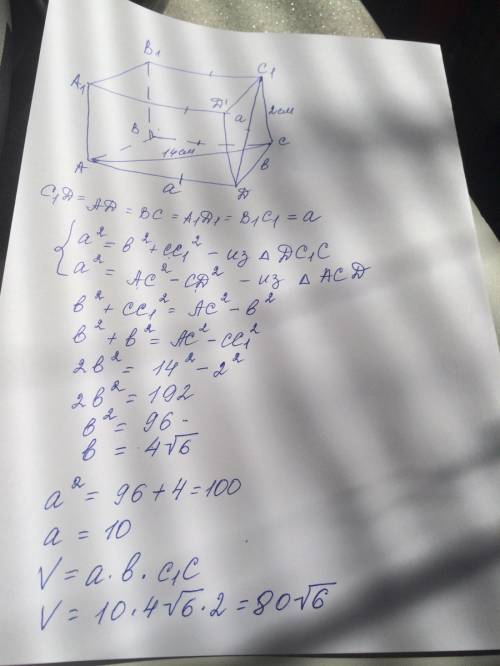 B₁
C₁
A₁
D'
a
2см
B
C
14см
A
B
a
D
C₁D = AD = BC = A₁D₁ = B₁C₁ = a
{ a² = b² + CC₁² - из △ DC₁C
a² = AC² - CD² - из △ ACD
b² + CC₁² = AC² - b²
b² + b² = AC² - CC₁²
2b² = 14² - 2²
2b² = 192
b² = 96
b = 4√6
a² = 96 + 4 = 100
a = 10
V = a · b · C₁C
V = 10 · 4√6 · 2 = 80√6